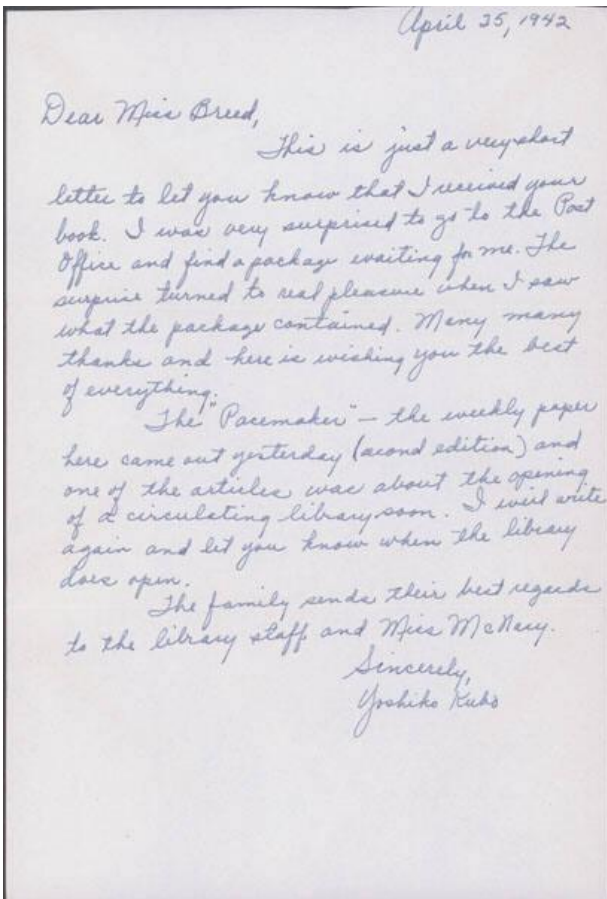 April 25, 1942
Dear Miss Breed,
This is just a very short
letter to let you know that I received your
book. I was very surprised to go to the Post
Office and find a package waiting for me. The
surprise turned to real pleasure when I saw
what the package contained. Many many
thanks and here is wishing you the best
of everything.
The "Pacemaker" – the weekly paper
here came out yesterday (second edition) and
one of the articles was about the opening
of a circulating library soon. I will write
again and let you know when the library
does open.
The family sends their best regards
to the library staff and Miss McNary.
Sincerely,
Yoshiko Kubo